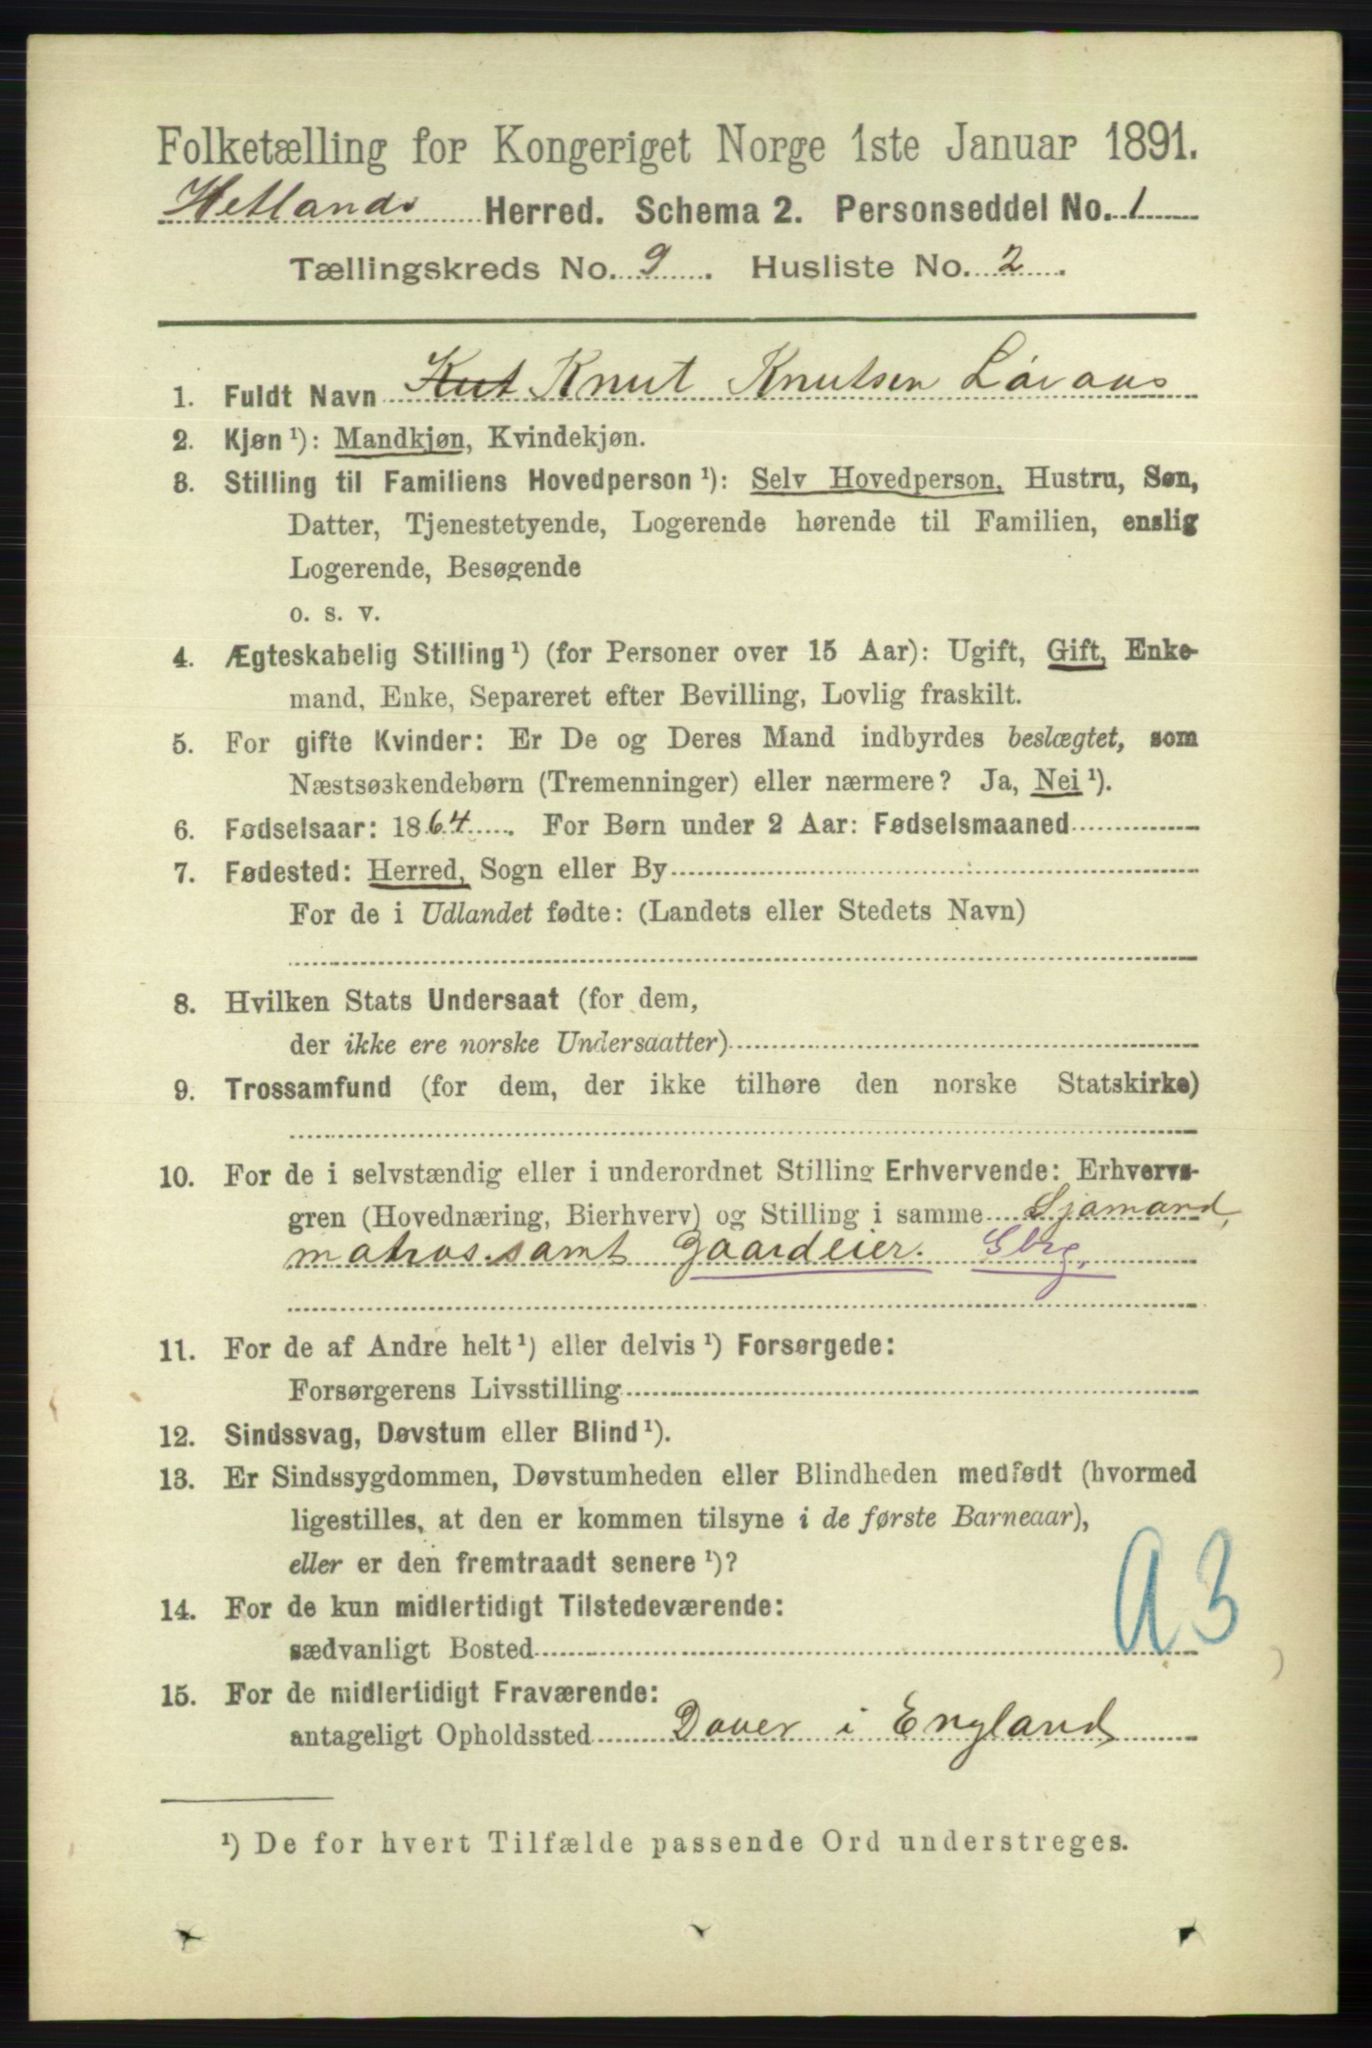 Folketælling for Kongeriget Norge 1ste Januar 1891.
Hetlands Herred. Schema 2. Personseddel No. 1
Tællingskreds No. 9. Husliste No. 2.
1. Fuldt Navn Kut Knut Knutsen Lövaas
2. Kjøn ¹): Mandkjøn, Kvindekjøn.
3. Stilling til Familiens Hovedperson ¹): Selv Hovedperson, Hustru, Søn,
Datter, Tjenestetyende, Logerende hørende til Familien, enslig
Logerende, Besøgende
o. s. v.
4. Ægteskabelig Stilling ¹) (for Personer over 15 Aar): Ugift, Gift, Enke-
mand, Enke, Separeret efter Bevilling, Lovlig fraskilt.
5. For gifte Kvinder: Er De og Deres Mand indbyrdes beslægtet, som
Næstsøskendebørn (Tremenninger) eller nærmere? Ja, Nei ¹).
6. Fødselsaar: 1864. For Børn under 2 Aar: Fødselsmaaned
7. Fødested: Herred, Sogn eller By
For de i Udlandet fødte: (Landets eller Stedets Navn)
8. Hvilken Stats Undersaat (for dem,
der ikke ere norske Undersaatter)
9. Trossamfund (for dem, der ikke tilhøre den norske Statskirke)
10. For de i selvstændig eller i underordnet Stilling Erhvervende: Erhvervs-
gren (Hovednæring, Bierhverv) og Stilling i samme Sjømand,
matros samt Gaardeier. Gbrg.
11. For de af Andre helt ¹) eller delvis ¹) Forsørgede:
Forsørgerens Livsstilling
12. Sindssvag, Døvstum eller Blind ¹).
13. Er Sindssygdommen, Døvstumheden eller Blindheden medfødt (hvormed
ligestilles, at den er kommen tilsyne i de første Barneaar),
eller er den fremtraadt senere ¹)?
A3
14. For de kun midlertidigt Tilstedeværende:
sædvanligt Bosted
15. For de midlertidigt Fraværende:
antageligt Opholdssted Dover i England
¹) De for hvert Tilfælde passende Ord understreges.